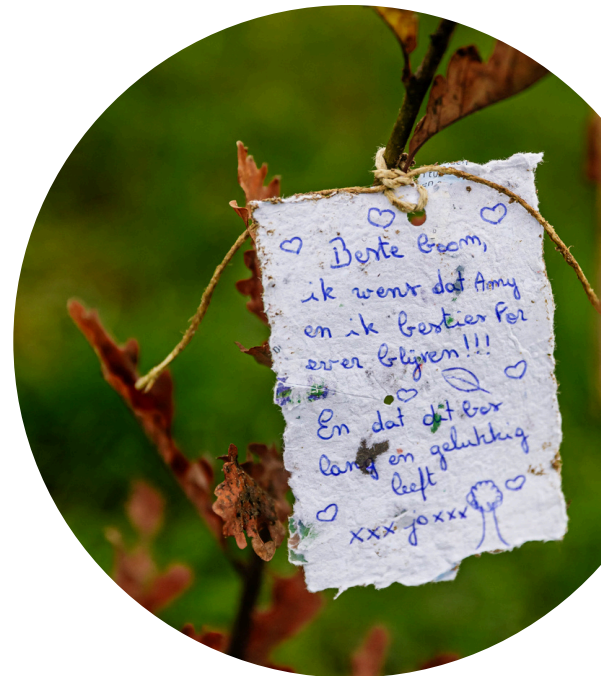 Beste boom,
ik wens dat Amy
en ik besties For
ever blijven!!!
En dat dit bos
lang en gelukkig
leeft
xxx jo xxx